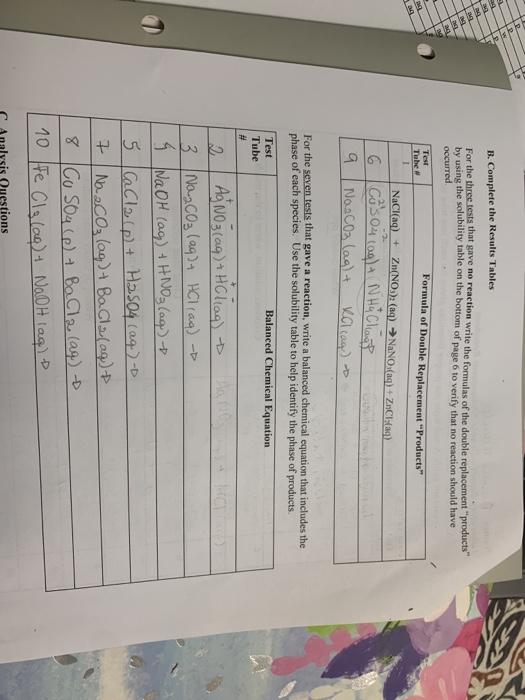 B. Complete the Results Tables
For the three tests that gave no reaction write the formulas of the double replacement "products"
by using the solubility table on the bottom of page 6 to verify that no reaction should have
occurred.
Test Tube #
Formula of Double Replacement "Products"
1
NaCl(aq) + Zn(NO3)2 (aq) → NaNO3(aq) + ZnCl2(aq)
6 CuSO4 (aq) + NH4Cl(aq) →
9 Na2CO3 (aq) + KCl(aq) →
For the seven tests that gave a reaction, write a balanced chemical equation that includes the
phase of each species. Use the solubility table to help identify the phase of products.
Test Tube #
Balanced Chemical Equation
2 AgNO3 (aq) + HCl(aq) →
3 Na2CO3 (aq) + HCl (aq) →
4 NaOH (aq) + HNO3 (aq) →
5 CaCl2 (p) + H2SO4 (aq) →
7 Na2CO3 (aq) + BaCl2 (aq) →
8 CuSO4 (p) + BaCl2 (aq) →
10 FeCl3 (aq) + NaOH (aq) →
C. Analysis Questions